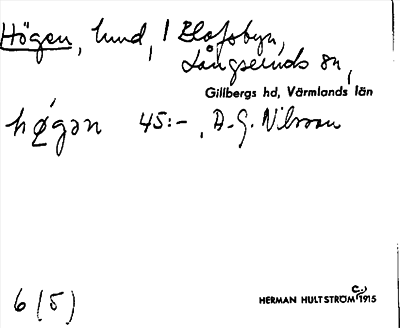 Högen, lund, i Blofsbyn,
Långseruds sn,
Gillbergs hd, Värmlands län
høgən 45:-, A.G. Nilsson
6 (5)
HERMAN HULTSTRÖM C:a 1915